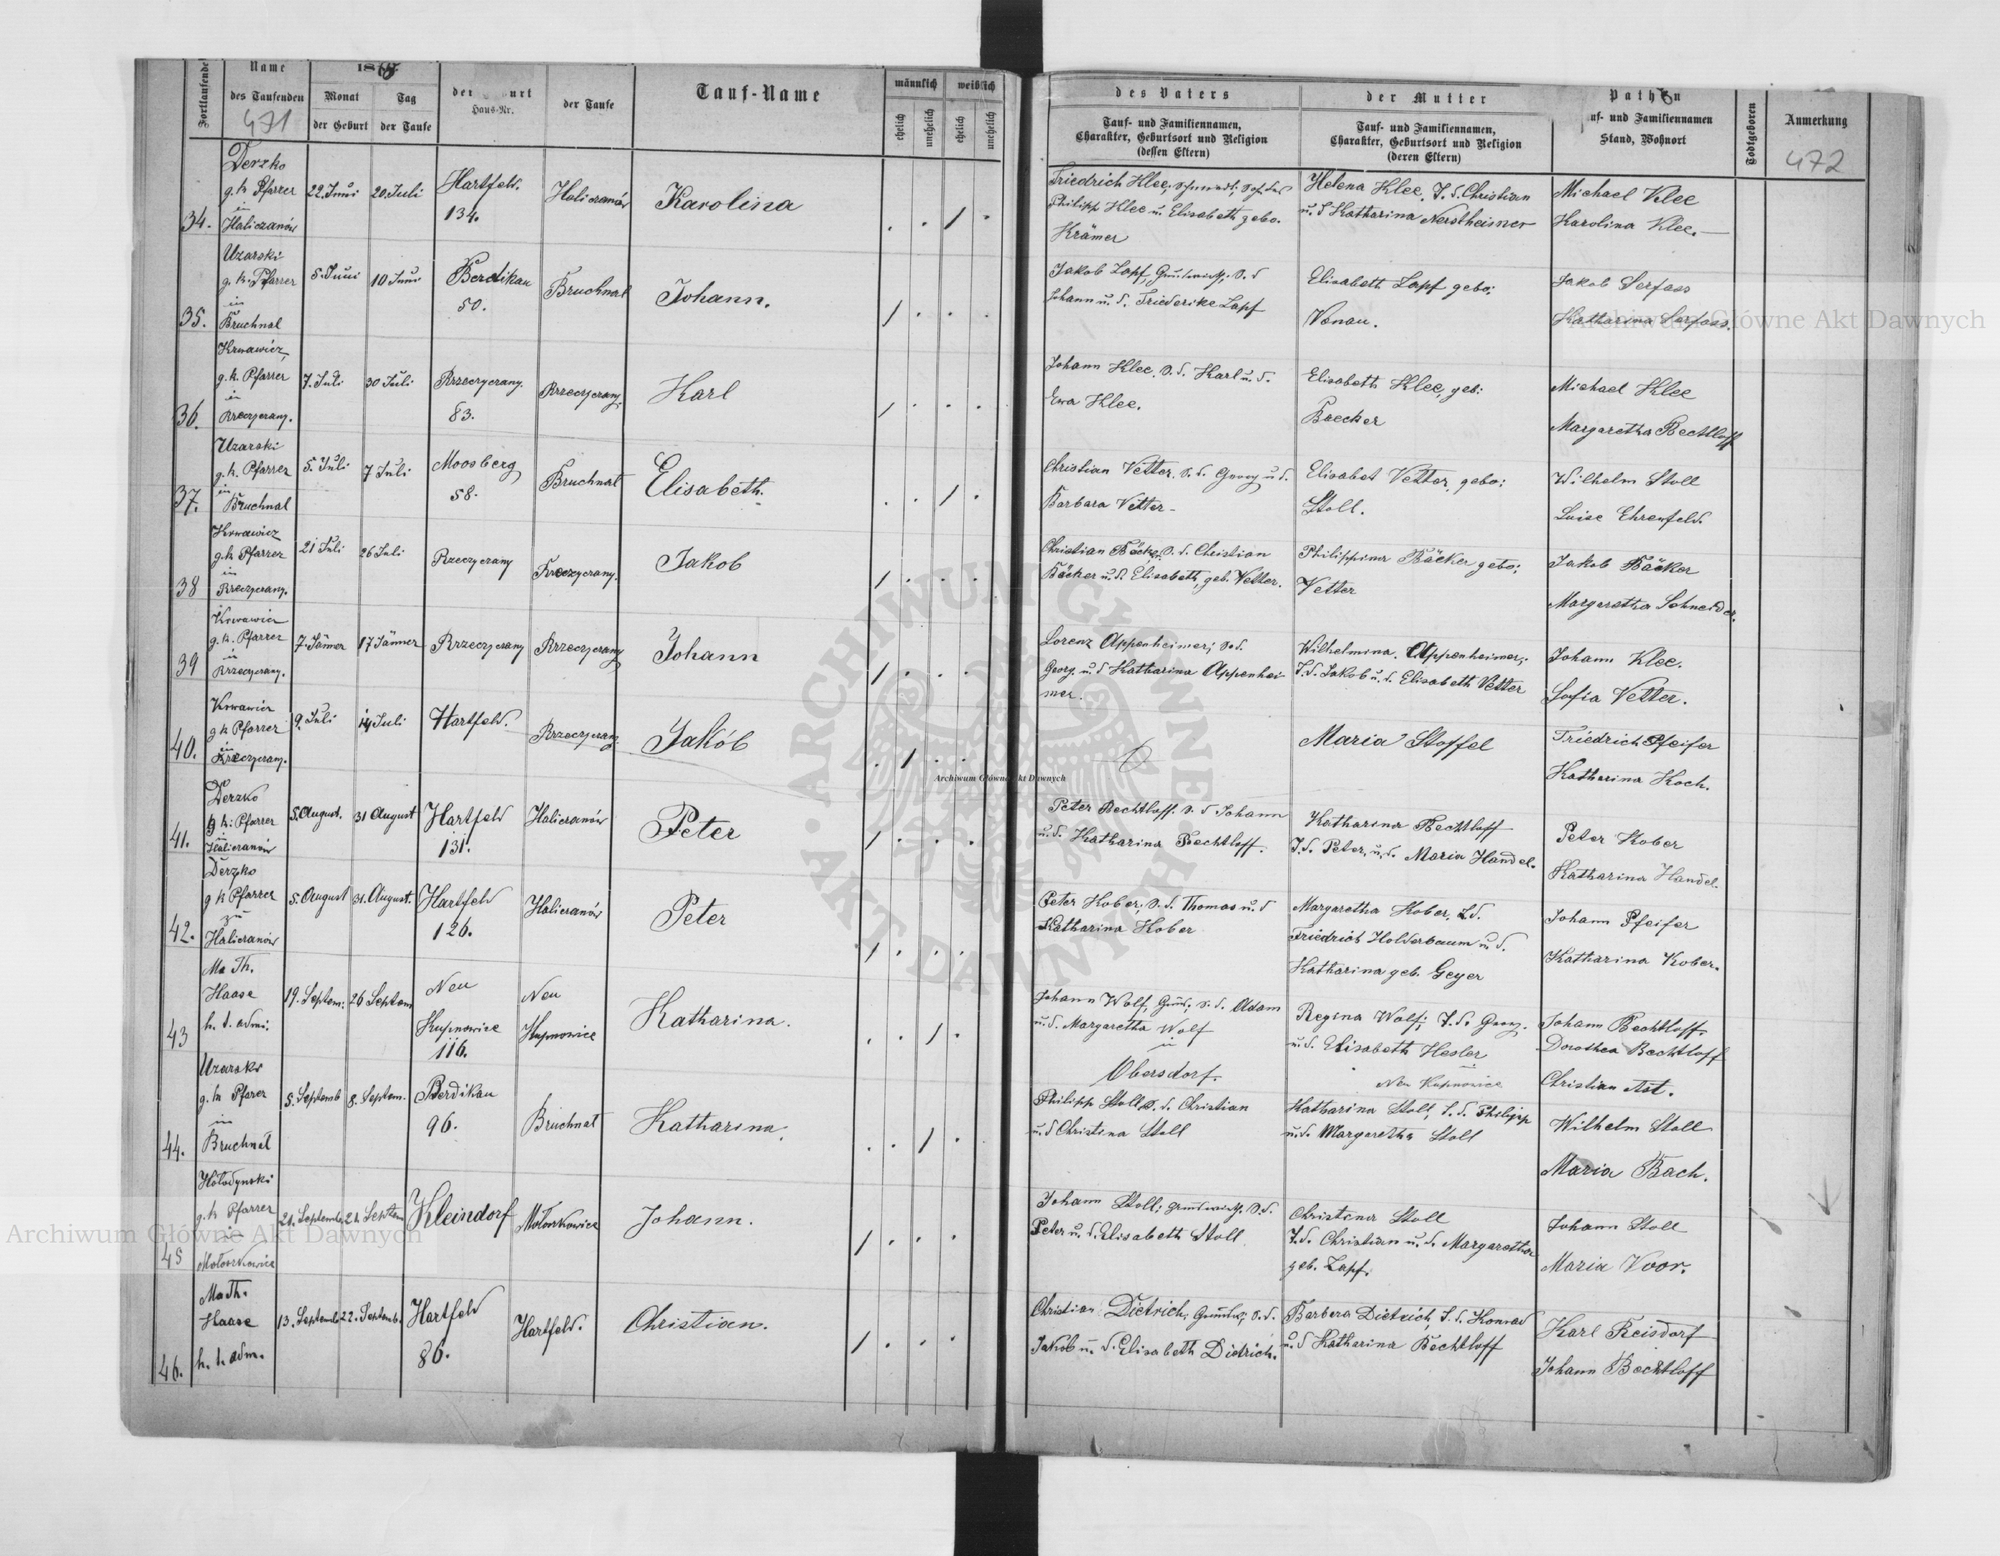 Fortlaufende
Name
des Taufenden
471
Monat
der Geburt
Tag
der Taufe
Haus-Nr.
der Taufe
Tauf-Name
männlich
weiblich
ehelich
unehelich
ehelich
unehelich
des Vaters
Tauf- und Familiennamen,
Charakter, Geburtsort und Religion
(dessen Eltern)
der Mutter
Tauf- und Familiennamen,
Charakter, Geburtsort und Religion
(deren Eltern)
Pathen
uf- und Familiennamen
Stand, Wohnort
Todtgeboren
Anmerkung
472
34.
Derzko
g. k. Pfarrer
in
Haliczanów
22. Juni
20. Juli
Hartfeld.
134.
Haliczanów
Karolina
Friedrich Klee,
Philipp Klee u. Elisabeth gebo.
Krämer
Helena Klee, T. d. Christian
u. d Katharina
Michael Klee
Karolina Klee.
35.
Uzarski
g. k. Pfarrer
in
Bruchnal
5. Juni
10 Juni
Berdikau
50.
Bruchnal
Johann.
Jakob Zapf, S. d
Johann u. d. Friederike Zapf
Elisabeth Zapf gebo:
Vonau.
Jakob Serfass
Katharina Serfass.
36.
Krwawicz,
g. k. Pfarrer
in
Rzeczyczany.
7. Juli
30 Juli
Rzeczyczany.
83.
Rzeczyczany
Karl
Johann Klee, S. d. Karl u. d.
Ewa Klee.
Elisabeth Klee, geb:
Baecker
Michael Klee
Margaretha Bechtloff
37.
Uzarski
g. k. Pfarrer
in
Bruchnal
5. Juli
7 Juli
Moosberg
58.
Bruchnal
Elisabeth.
Christian Vetter, S. d. Georg u d.
Barbara Vetter
Elisabet Vetter, gebo:
Stoll.
Wilhelm Stoll
Luise Ehrenfeld.
38
Krwawicz
g. k Pfarrer
in
Rzeczyczany.
21 Juli
26 Juli
Rzeczyczany
Rzeczyczany.
Jakob
Christian Bäcker, S. d. Christian
Bäcker u. d. Elisabeth, geb. Vetter.
Philippina Bäcker gebo:
Vetter
Jakob Bäcker
Margaretha Schneider.
39
Krwawicz
g. k. Pfarrer
in
Rzeczyczany.
7. Jänner
17 Jänner
Rzeczyczany
Rzeczyczany
Johann
Lorenz Appenheimer; S. d.
Georg. u. d Katharina Appenhei-
mer.
Wilhelmina Appenheimer,
T. d. Jakob u. d. Elisabeth Vetter
Johann Klee.
Sofia Vetter.
40.
Krwawicz
g k Pfarrer
in
Rzeczyczany.
9. Juli
14 Juli
Hartfeld.
Rzeczyczany.
Jakób
Maria Stoffel
Friedrich Pfeifer
Katharina Koch.
41.
Derzko
g k: Pfarrer
in
Haliczanów
5. August.
31 August
Hartfeld
131.
Haliczanów
Peter
Peter Bechtloff. S. d Johann
u. d. Katharina Bechtloff.
Katharina Bechtloff
T. d. Peter, u. d. Maria Handel.
Peter Kober
Katharina Handel.
42.
Derzko
g k Pfarrer
zu
Haliczanów
5. August
31. August.
Hartfeld
126.
Haliczanów
Peter
Peter Kober, S. d. Thomas u. d
Katharina Kober
Margaretha Kober, T. d.
Friedrich Holderbaum u d.
Katharina geb. Geyer
Johann Pfeifer
Katharina Kober.
43
Ma Th.
Haase
h. t. admi.
19. Septem.
26 Septem
Neu
Kupnowice
116.
Neu
Kupnowice
Katharina.
Johann Wolf, S. d. Adam
u. d. Margaretha Wolf
in
Obersdorf.
Regina Wolf; T. d. Georg.
u. d. Elisabeth Hesler
Neu Kupnowice
Johann Bechtloff.
Dorothea Bechtloff
Christian Ast.
44.
Uzarski
g. k Pfarer
in
Bruchnal
5. Septemb
8. Septem.
Berdikau
96.
Bruchnal
Katharina.
Philipp Stoll, S. d. Christian
u. d Christina Stoll
Katharina Stoll, T. d. Philipp
u. d. Margaretha Stoll
Wilhelm Stoll
Maria Bach.
45
Hołodynski
g. k Pfarrer
in
Mołoszkowice
Kleindorf
Mołoszkowice
Johann.
Johann Stoll, S. d.
Peter u. d. Elisabeth Stoll
Christina Stoll
T. d. Christian u. d. Margaretha
geb. Zapf.
Johann Stoll
Maria Voor.
46.
Ma Th.
Haase
h. t. adm.
13. Septemb
22. Septemb.
Hartfeld
86.
Hartfeld.
Christian.
Christian Dietrich, S. d.
Jakob u. d. Elisabeth Dietrich.
Barbara Dietrich, T. d. Konrad
u. d Katharina Bechtloff
Karl Reisdorf
Johann Bechtloff
Archiwum Główne Akt Dawnych
Archiwum Główne Akt Dawnych
Archiwum Główne Akt Dawnych
ARCHIWUM GŁÓWNE AKT DAWNYCH